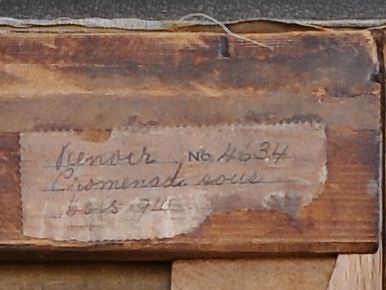 Renoir No 4634
Promenade sous
bois